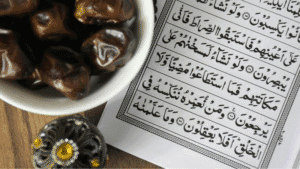 يَكْسِبُونَ ۝ وَلَوْ نَشَآءُ
عَلَىٰٓ أَعْيُنِهِمْ فَاسْتَبَقُوا الصِّرَاطَ فَأَنَّىٰ
يُبْصِرُونَ ۝ وَلَوْ نَشَآءُ لَمَسَخْنٰهُمْ عَلَىٰ
مَكَانَتِهِمْ فَمَا اسْتَطَاعُوا مُضِيًّا وَّلَا
يَرْجِعُونَ ۝ وَمَنْ نُّعَمِّرْهُ نُنَكِّسْهُ فِى
الْخَلْقِ ۖ أَفَلَا يَعْقِلُونَ ۝ وَمَا عَلَّمْنٰهُ